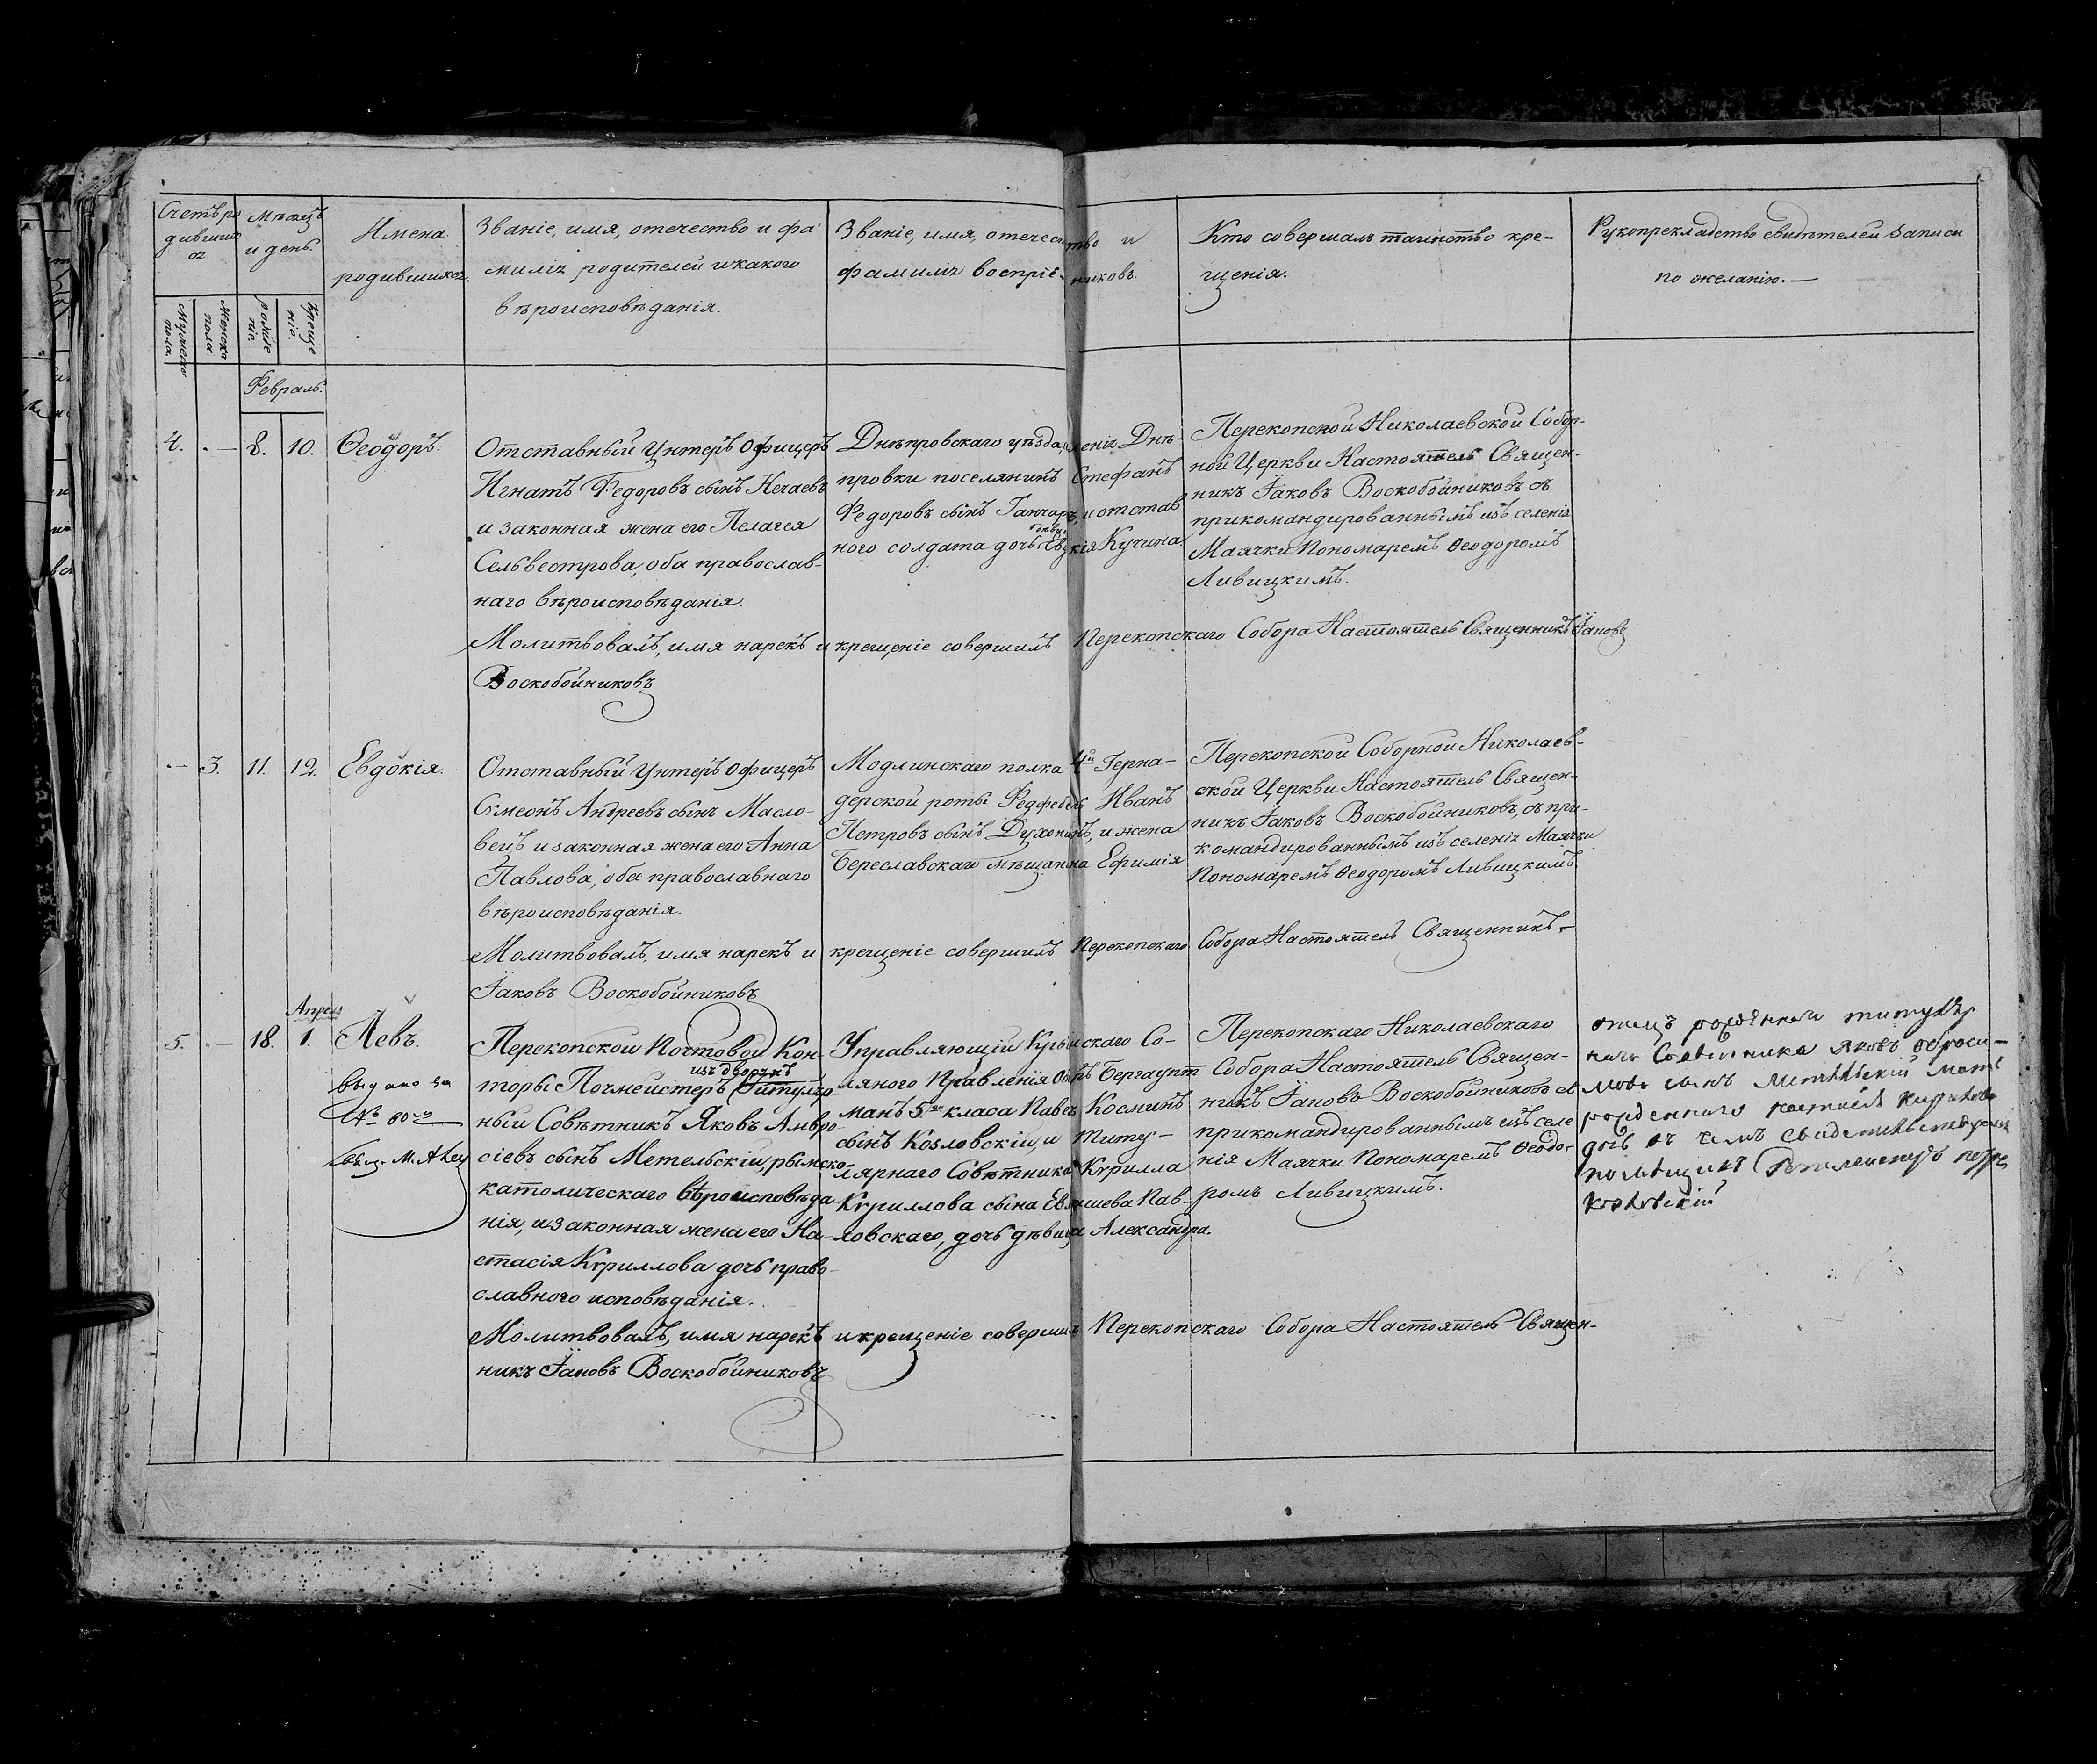 Счетъ ро
дивших
ся
Мѣсяцъ
и день.
Имена
родившихся.
Званіе, имя, отечество и фа-
милія родителей и какого
вѣроисповѣданія.
Званіе, имя, отечество и
фамилія воспріемниковъ.
Кто совершалъ таинство кре-
щенія.
Рукоприкладство свидѣтелей записи
по желанію. —
Мужеска
пола.
Женска
пола
рожде
ніе
креще
ніе.
Февраль.
4. . — 8. 10. Ѳеодоръ.
Отставный Унтеръ Офицеръ
Игнатъ Федоровъ сынъ Нечаевъ
и законная жена его Пелагея
Сельвестрова, оба православ-
наго вѣроисповѣданія.
Днѣпровскаго уѣзда, Днѣ-
провки поселянинъ Стефанъ
Федоровъ сынъ Ганчаръ, и отстав
ного солдата дочь Кучина
Перекопской Николаевской Собор-
ной Церкви Настоятель Священ-
никъ Іаковъ Воскобойниковъ съ
прикомандированнымъ изъ селенія
Маячки Пономаремъ Ѳеодоромъ
Ливицкимъ.
Молитвовалъ, имя нарекъ и крещеніе совершилъ Перекопскаго Собора Настоятель Священникъ Іаковъ
Воскобойниковъ
— 3. 11. 12. Евдокія.
Отставный Унтеръ Офицеръ
Сѵмеонъ Андреевъ сынъ Масло-
вецъ и законная жена его Анна
Павлова, оба православнаго
вѣроисповѣданія.
Модлинскаго полка 4й Герна-
дерской роты Федфебель Иванъ
Петровъ сынъ и жена
Береславскаго мѣщанина Ефимія
Перекопской Соборной Николаев-
ской Церкви Настоятель Священ-
никъ Іаковъ Воскобойниковъ, съ при-
командированнымъ изъ селенія Маячки
Пономаремъ Ѳеодоромъ Ливицкимъ
Молитвовалъ, имя нарекъ и крещеніе совершилъ Перекопскаго Собора Настоятель Священникъ
Іаковъ Воскобойниковъ
Апрель
5. . — 18. 1. Левъ.
выдано за
№ 80
Перекопской Почтовой Кон-
изъ дворянъ
торы Почмейстеръ Титуляр
ный Совѣтникъ Яковъ Амвро-
сіевъ сынъ Метельскій, римско-
католическаго вѣроисповѣда
нія, и законная жена его На-
стасія Кѵриллова дочь право-
славного исповѣданія.
Управляющій Крымскаго Со-
ляного Правленія Бергаупт
манъ 5го класа Павелъ Косминъ
сынъ Козловскій, и Титу-
лярнаго Совѣтника Кѵрилла
Кѵриллова сына Пав-
ловскаго, дочь дѣвица Александра.
Перекопскаго Николаевскаго
Собора Настоятель Священ-
никъ Іаковъ Воскобойниковъ съ
прикомандированнымъ изъ селе
нія Маячки Пономаремъ Ѳеодо-
ромъ Ливицкимъ.
отецъ рожденнаго титуляр
наго Совѣтника Яковъ
сынъ Метельскій мать
рожденнаго
дочь въ чемъ
Козловскій
Молитвовалъ, имя нарекъ и крещеніе совершилъ Перекопскаго Собора Настоятель Священ-
никъ Іаковъ Воскобойниковъ